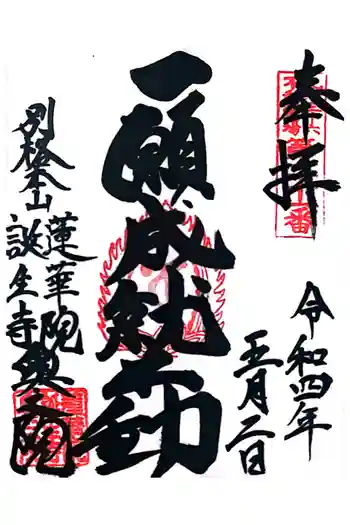 奉拝
令和四年
五月二日
一願成就不動
別格本山
蓮華院
誕生寺奥之院